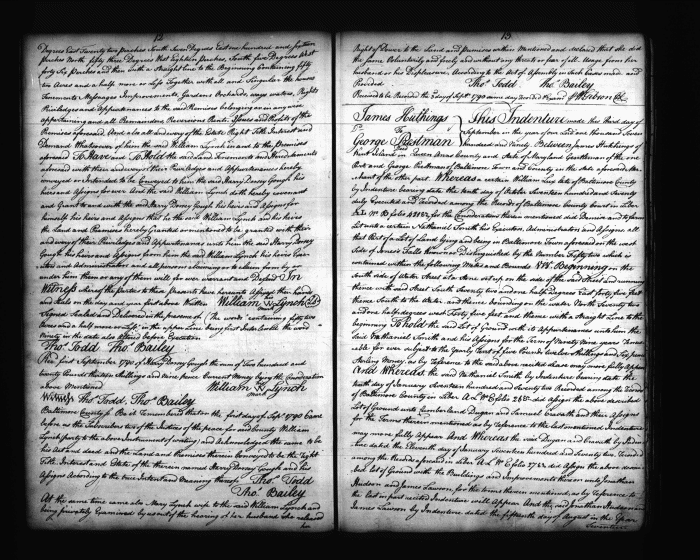 12
Degrees East Twenty two perches South Seven Degrees East one hundred and sixteen
Perches North fifty three Degrees West Eighteen Perches, South five Degrees West
forty Six Perches and then with a Straight line to the Beginning Containing fifty
two Acres and a half more or less Together with all and Singular the houses
Tenements Messages Improvements, Gardens Orchards, ways waters, Rights
Priviledges and Appurtenances to the said Premises belonging or in any wise
appertaining and all Remainders Reversions Rents Issues and Profits of the
Premises aforesaid, And also all and every of the Estate Right Title Interest and
Demand Whatsoever of him the said William Lynch in and to the Premises
aforesaid To Have and To Hold the said Land Tenements and Herediments
aforesaid with them and every of their Priviledges and Appurtenances hereby
conveyed or Intended to be Conveyed to him the said Harry Dorsey Gough his
heirs and Assigns for ever And the said William Lynch doth hereby covenant
and Grant to and with the said Harry Dorsey Gough his heirs and Assigns for
himself his heirs and Assigns that he the said William Lynch and his heirs
the Land and Premises hereby Granted or mentioned to be granted with their
and every of their Priviledges and Appurtenances unto him the said Harry Dorsey
Gough his heirs and Assigns from him the said William Lynch his heirs Exec-
utors and Administrators and all persons claiming or to claim from by or
under him them or any of them will for ever warrant and Defend In
Witness whereof the Parties to these Presents have Interchangeably set their hands
and Seals on the day and year first above Written William his mark Lynch
Signed Sealed and Delivered in the presence of (The words "containing fifty two
Acres and a half more or Less" in the upper Line being first Interlined
in the date also altered before Execution
Thos Todd Thos Bailey
Then first September 1790 of Harry Dorsey Gough the sum of Two hundred and
County Pounds Shillings and Nine pence Current Money being the Consideration
above Mentioned William his mark Lynch
Witness Thos Todd Thos Bailey
Baltimore County Sc Be it Remembered that on the first day of Sept 1790 Came
before us the Subscribers two of the Justices of the peace for said County William
Lynch party to the above Instrument of writing and Acknowledged the same to be
his Act and deed and the Land and Premises therein Conveyed to be the Right
Title, Interest and Estate of the therein named Harry Dorsey Gough and his
Assigns According to the true Intent and Meaning thereof Thos Todd
Thos Bailey
At the same time came also Mary Lynch wife to the said William Lynch and
being privately Examined by us out of the hearing of her husband She released
her
13
Right of Dower to the Land and Premises within Mentioned and declared that she did
the same Voluntarily and freely and without any threats or fear of ill Usage from her
husband or his Displeasure According to the Act of Assembly in Such Cases made and
Provided Thos Todd Thos Bailey
Received to be Recorded the 2d day of Sept 1790 same day Recorded & Examd Wm Gibson Clk
James Hutchings
To
George Presstman
This Indenture made this third day of
September in the year of our Lord one thousand Seven
hundred and Ninety Between James Hutchings of
Kent Island in Queen Anns County and State of Maryland Gentleman of the one
Part and George Presstman of Baltimore Town and County in the State aforesaid Mer-
chant of the other part Whereas a certain William Lux late of Baltimore County
by Indenture bearing date the tenth day of October Seventeen hundred and Seventy
duly Executed and Recorded among the Records of Baltimore County Court in Liber
A L No B folio for the Consideration therein mentioned did Demise and to farm
Let unto a certain Nathaniel Smith his Executors, Administrators and Assigns all
that Part of a Lot of Land lying and being in Baltimore Town aforesaid on the East
Side of Jones's Falls known or Distinguished by the Number Fifty two which is
contained within the following Metes and Bounds Viz Beginning on the
South side of Water Street at a Stone set up on the side of the said Street and running
thence with said Street South Seventy two and one half degrees East forty five feet
thence South to the Water and thence bounding on the Water North Seventy two
and one half degrees West Forty five feet and thence with a Straight Line to the
beginning To hold the said Lot of Ground with its Appurtenances unto him the
said Nathaniel Smith and his Assigns for the Term of Ninety Nine years Renew-
able for ever subject to the yearly Rent of five Pounds twelve Shillings and Six pence
Sterling Money as by Reference to the said above recited Lease may more fully Appear
And Whereas the said Nathaniel Smith by Indenture bearing date the
tenth day of January Seventeen hundred and Seventy two Recorded among the Records
of Baltimore County in Liber A L No E folio did Assign the above described
Lot of Ground unto Cumberland Dugan and Samuel and their Assigns
for the Terms therein mentioned as by reference to the last mentioned Indenture
may more fully Appear And Whereas the said Dugan and by Inden-
ture dated the Eleventh day of January Seventeen hundred and Seventy two, Recorded
among the Records aforesaid in Liber A L No E folio did Assign the above descri-
bed Lot of Ground with the Buildings and Improvements thereon unto Jonathan
Hudson and James Lawson, for the terms therein mentioned, as by reference to
the last in part recited Indenture will Appear And the said Jonathan Hudson and
James Lawson by Indenture dated the fifteenth day of August in the Year
Seventeen